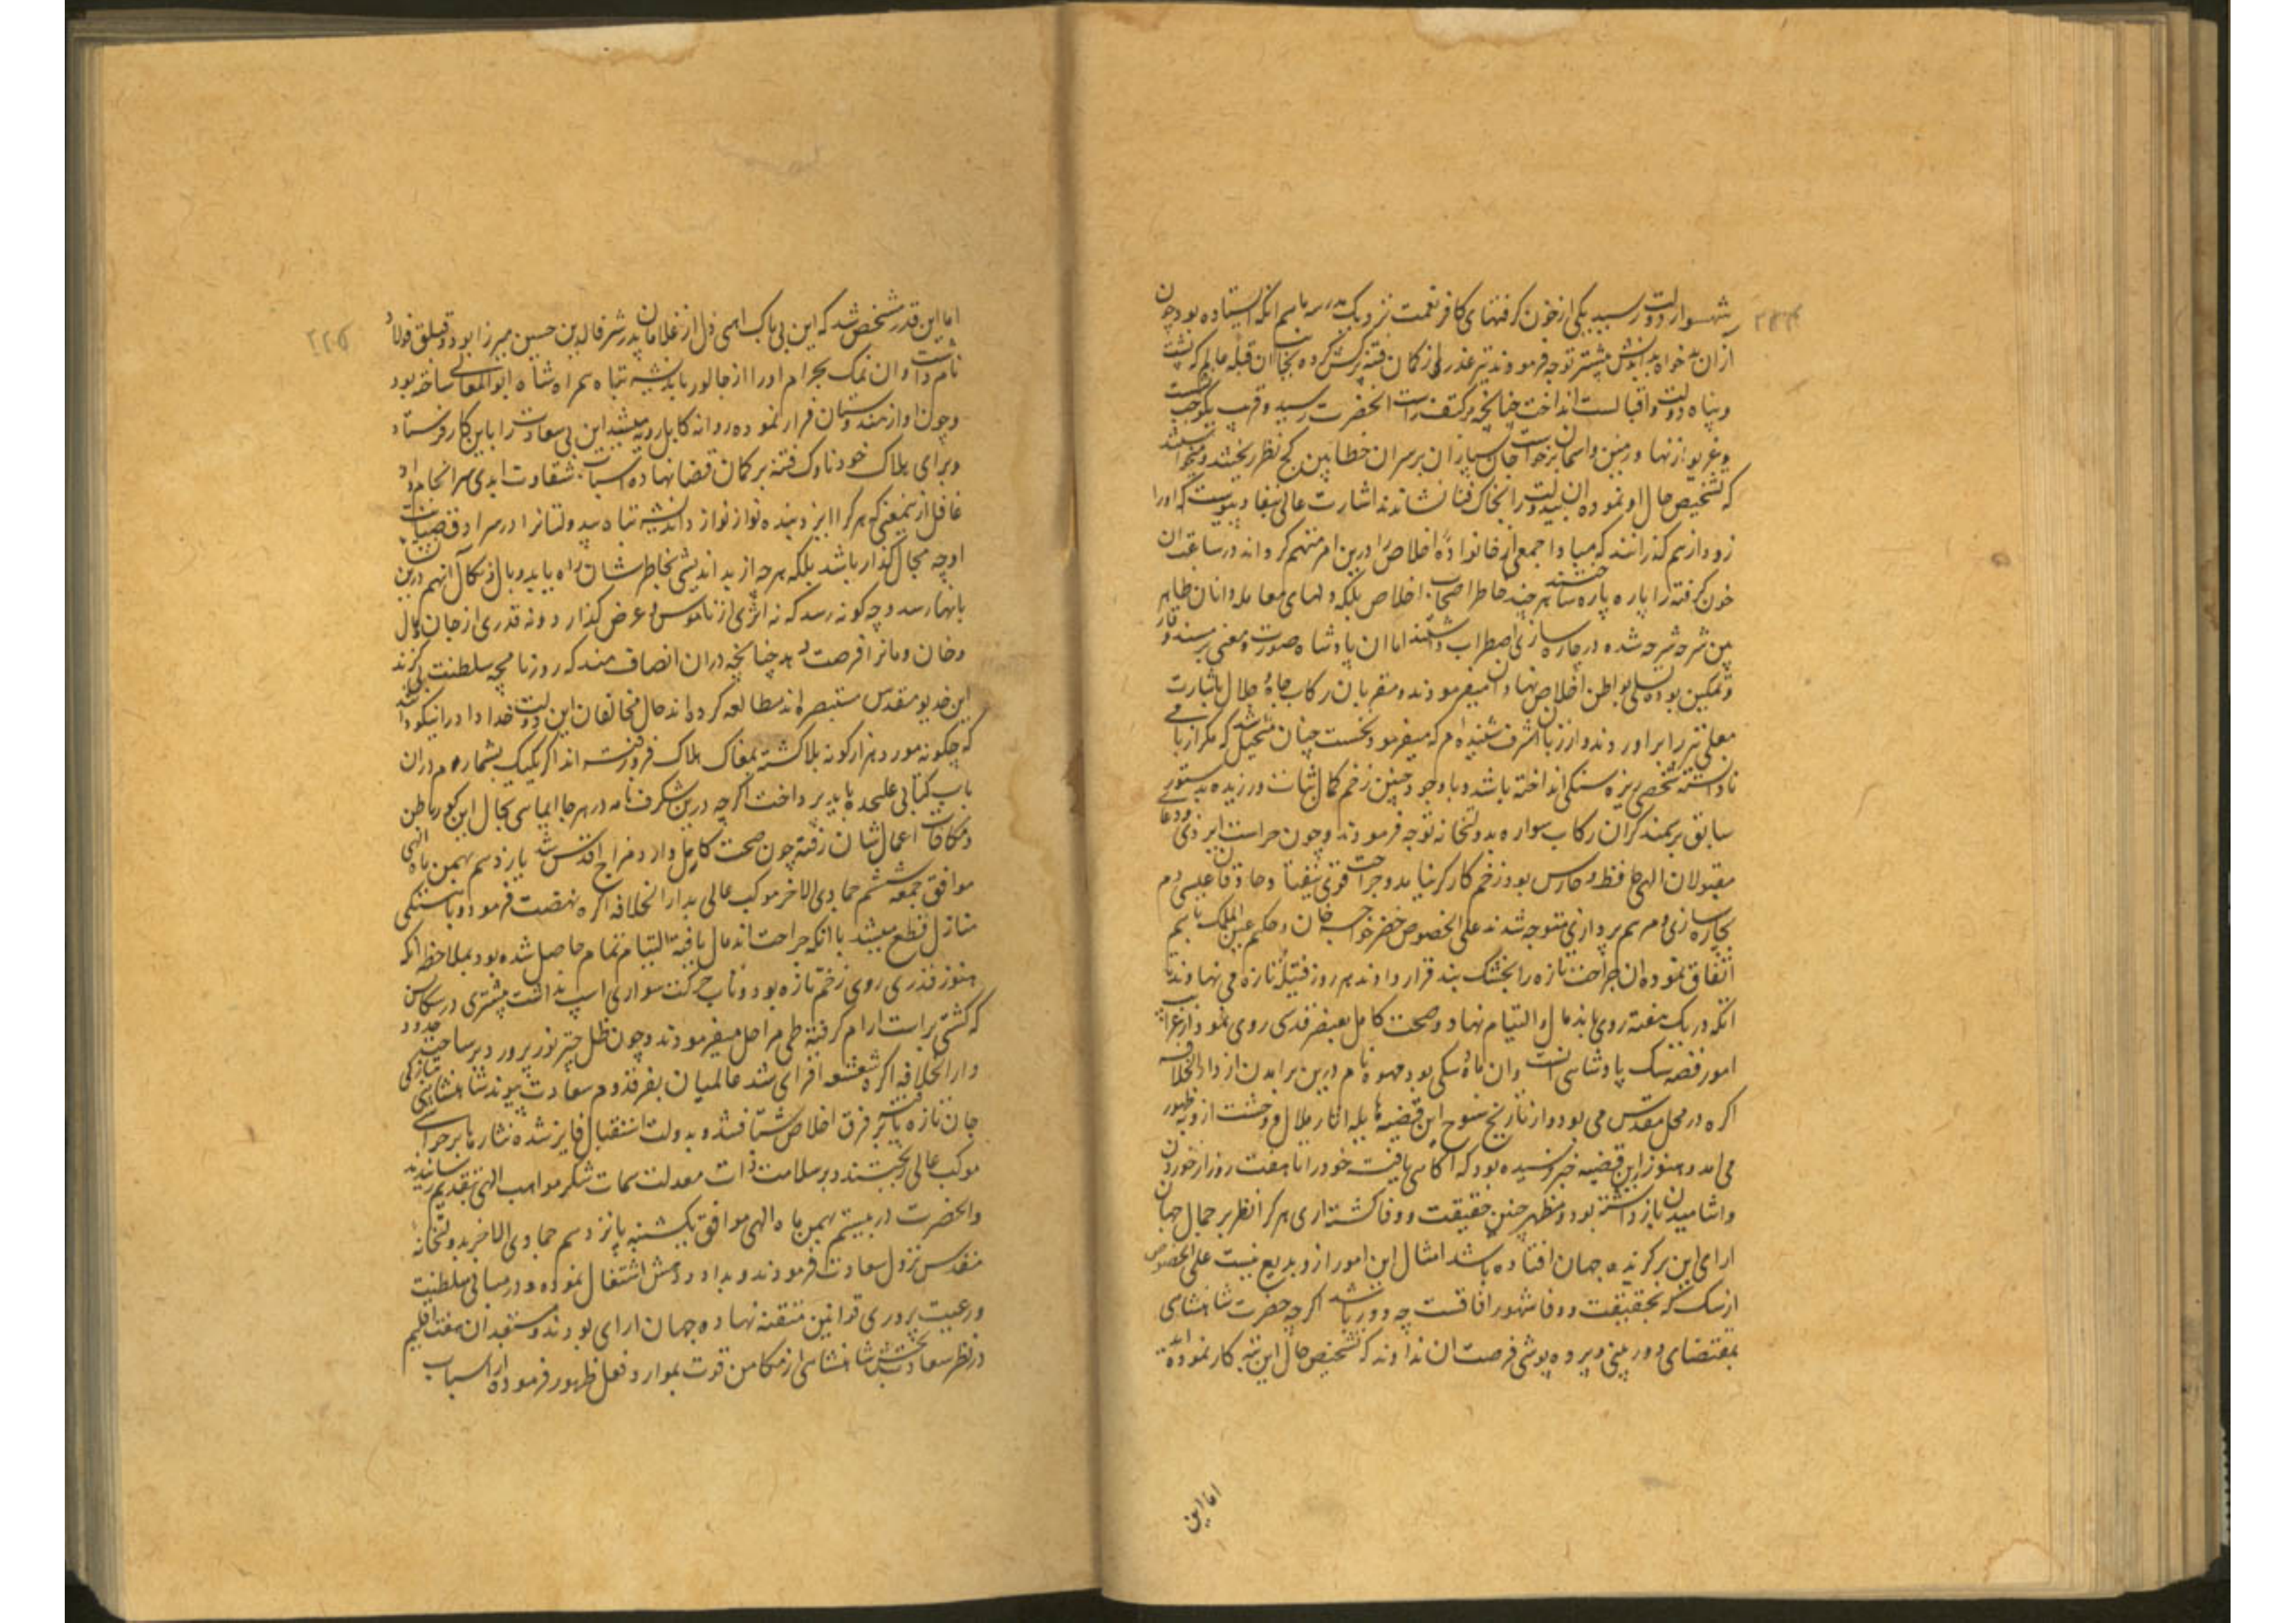 شهسوار دولت رسید یکی از خون گرفتهای کافر نعمت نزدیک مدرسه ماهم انکه ایستاده بود چون
ازان بدخواه بداندیش پیشتر توجه فرمودند تیر غدر از کمان فتنه پرکش کرده بجانب ان قبله عالم که پشت
و پناه دولت و اقبالست انداخت چنانچه بر کتف راست انحضرت رسید و قریب یکوجب نشست
و غریو از نهاد زمین و اسمان برخواست جان سپاران بر سر ان خطا بین کج نظر ریختند و میخواستند
که تشخیص حال او نموده ان بیدولت را بخاک فنا نشانند اشارت عالی بنفاد پیوست که او را
زود از هم گذرانند که مبادا جمعی از خانواده اخلاص را درین امر متهم گرداند در ساعت ان
خون گرفته را پاره پاره ساختند هر چند خاطر اصحاب اخلاص بلکه دلهای معامله دانان ظاهر
بین شرحه شرحه شده در چاره سازی اضطراب داشتند اما ان پادشاه صورت و معنی بر مسند وقار
و تمکین بوده تسلی بواطن اخلاص نهادان میفرمودند و مقربان رکاب جاه و جلال باشارت
معلی تیر را براوردند و از زبان اشرف شنیده‌ام که میفرمود نخست چنان متخیل شد که مگر از بامی
نادانسته شخصی ریزه سنگی انداخته باشد و با وجود چنین زخم کمال ثبات ورزیده بدستوری
سابق بر سمند گران رکاب سواره بدولتخانه توجه فرمودند و چون حراست ایزدی و دعا
مقبولان الهی حافظ و حارس بود زخم کارگر نیامد و جراحت قوی نیفتاد و حاذقان عیسی دم
بچاره سازی و مرهم پردازی متوجه شدند علی الخصوص خضر خواجه خان و حکیم عین الملک باهم
اتفاق نموده ان جراحت تازه را بخشک بند قرار دادند هر روز فتیله تازه می نهادند تا
انکه در یک هفته روی باندمال و التیام نهاد و صحت کامل بعنصر قدسی روی نمود از غرایب
امور قصه سگ پادشاهی است و ان ماده سگی بود مهوه نام درین برامدن از دار الخلافه
اگره در محل مقدس می بود و از تاریخ سنوح این قضیه هایله اثار ملال و وحشت ازو بظهور
می امد و هنوز این قضیه خبر نرسیده بود که اگاهی یافت خود را تا هفت روز از خوردن
و اشامیدن باز داشته بود و مظهر چنین حقیقت و وفا گشته اری هر کرا نظر بر جمال جهان
ارای این برگزیده جهان افتاده باشد امثال این امور ازو بدیع نیست علی الخصوص
از سگ که بحقیقت و وفا مشهور افاقست چه دور باشد اگرچه حضرت شاهنشاهی
بمقتضای دور بینی و پرده پوشی فرصت ان ندادند که تشخیص حال این تبه کار نموده اید
اما این
اما این قدر مشخص شد که این بی باک از غلامان پدر شرف الدین حسین میرزا بود و قتلق فولاد
نام داشت و ان نمک بحرام او را از جالور باندیشه تباه همراه شاه ابو المعالی ساخته بود
و چون او از هندوستان فرار نموده روانه کابل رویه میشد این بی سعادت را باین کار فرستاد
و برای هلاک خود ناوک فتنه بر کمان قضا نهاده اسباب شقاوت ابدی سرانجام داد
غافل ازینمعنی که هر کرا ایزد بنده نواز نوازد اندیشه تباه بیدولتانرا در سرادقات
او چه مجال گذار باشد بلکه هرچه از بد اندیشی بخاطر ایشان راه یابد وبال و نکال انهم درین
بانها رسد و چگونه رسد که نه اثری از ناموس و عرض گذارد و نه قدری از جان و مال
و خان و مانرا فرصت دهد چنانچه دران انصاف مند که روزنامچه سلطنت بی گزند
این خدیو مقدس مستبصرانه مطالعه کرده‌اند حال مخالفان این دولت خداداد را نیکو دانند
که چگونه مورد هزار گونه بلا گشته بمغاک هلاک فرو رفته اند اگر یکیک بشماردم دران
باب کتابی علیحده باید پرداخت اگرچه درین شگرف نامه در هر جا ایمایی بحال این کور باطن
و مکافات اعمال شان رفته چون صحت کامل وارد مزاج اقدس شد یازدهم بهمن ماه الهی
موافق جمعه ششم جمادی الاخر موکب عالی بدار الخلافه اگره نهضت فرمود و باهستگی
منازل قطع میشد با انکه جراحت اندمال یافته التیام تمام حاصل شده بود بملاحظه انکه
هنوز قدری روی زخم تازه بود و تاب حرکت سواری اسپ نداشت پیشتری در سکاسن
که کشتی بر است ارام گرفته طی مراحل میفرمودند و چون ظل چتر نور پرور بر ساحت حدود
دار الخلافه اگره شعشعه افزای شد عالمیان بفر قدوم سعادت پیوند شاهنشاهی بتازگی
جان تازه یافته بر فرق اخلاص شتافتند و بدولت استقبال فایز شده نثارها بر حواشی
موکب عالی ریختند و بر سلامت ذات معدلت سمات شکر مواهب الهی بتقدیم رسانیدند
و انحضرت در بیستم بهمن ماه الهی موافق یکشنبه پانزدهم جمادی الاخر بدولتخانه
مقدس نزول سعادت فرمودند و بداد و دهش اشتغال نموده و در مبانی سلطنت
و رعیت پروری قوانین متقنه نهاده جهان ارای بودند و مستعدان هفت اقلیم
در نظر سعادت بخش شاهنشاهی از مکامن قوت بموارد فعل ظهور فرموده از اسباب